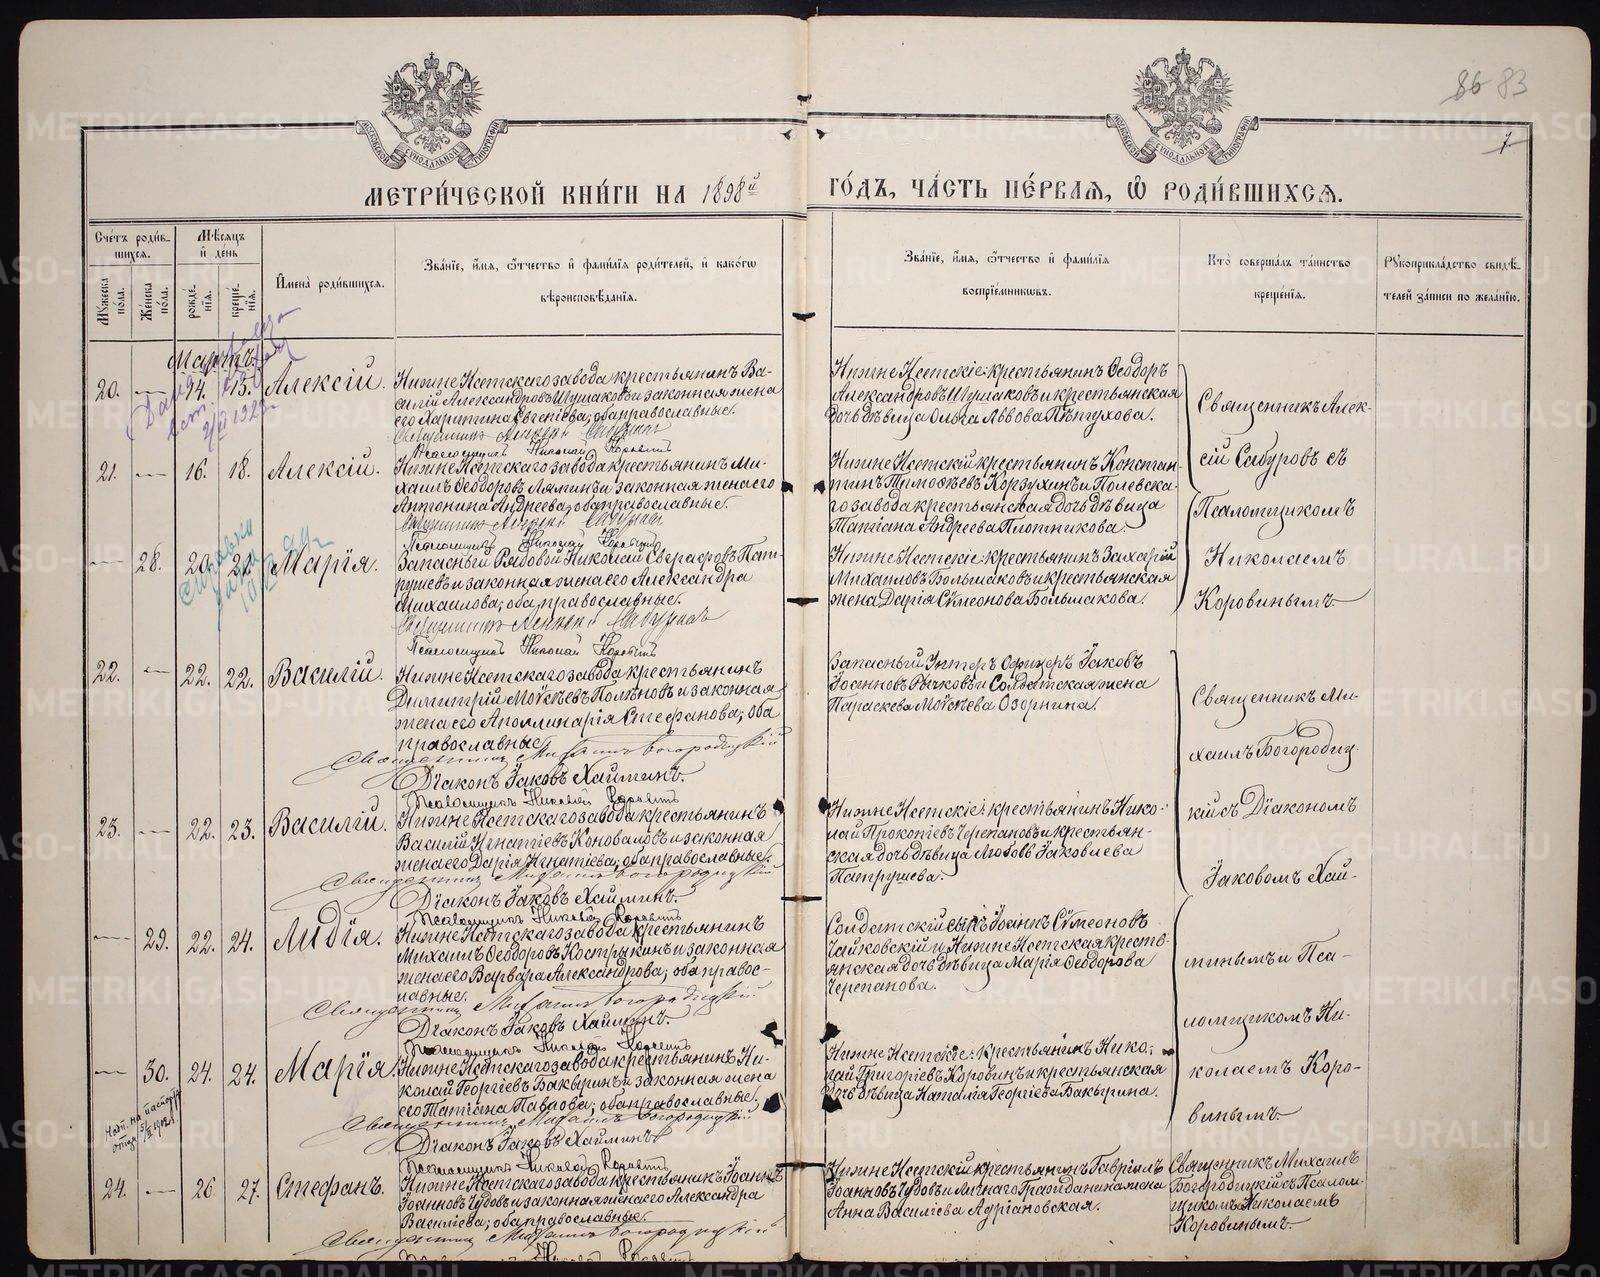 86 83
7
МОСКОВСКОЙ СѴНОДАЛЬНОЙ ТИПОГРАФІИ
МОСКОВСКОЙ СѴНОДАЛЬНОЙ ТИПОГРАФІИ
МЕТРИ́ЧЕСКОЙ КНИ́ГИ НА 1898й
ГО́ДЪ, ЧА́СТЬ ПЕ́РВАЯ, Ѡ РОДИ́ВШИХСЯ.
Сче́тъ роди́в-
шихся.
Мѣ́сяцъ
и҆ де́нь
Му́жеска по́ла.
Же́нска по́ла.
рожде́нія.
креще́нія.
И҆мена̀ роди́вшихся.
Зва́ніе, и҆́мя, ѻ҆́тчество и҆ фами́лія роди́телей, и҆ како́гѡ
вѣроисповѣ́данія.
Зва́ніе, и҆́мя, ѻ҆́тчество и҆ фами́лія
воспріе́мникѡвъ.
Кто̀ соверша́лъ та́инство
креще́нія.
Рꙋкоприкла́дство свидѣ́-
телей за́писи по жела́нію.
Мартъ
20. — 14. 15. Алексій.
Нижне Исетскаго завода крестьянинъ Ва-
силій Александровъ Шушаковъ и законная жена
его Харитина Евгеніева; оба православные.
Священникъ Алексій Сабуровъ
Псаломщикъ Николай Коровинъ
Нижне Исетскіе: крестьянинъ Ѳеодоръ
Александровъ Шушаковъ и крестьянская
дочь дѣвица Ольга Львова Пѣтухова.
Священникъ Алек-
сій Сабуровъ съ
Псаломщикомъ
Николаемъ
Коровинымъ
21. — 16. 18. Алексій.
Нижне Исетскаго завода крестьянинъ Ми-
хаилъ Ѳеодоровъ Ляминъ и законная жена его
Антонина Андреева; оба православные.
Священникъ Алексій Сабуровъ
Псаломщикъ Николай Коровинъ
Нижне Исетскій крестьянинъ Констан-
тинъ Тимоѳѣевъ Корзухинъ и Полевска-
го завода крестьянская дочь дѣвица
Татіана Андреева Плотникова.
— 28. 20. 21. Марія.
Запасный Рядовой Николай Сверафовъ Пат-
рушевъ и законная жена его Александра
Михаилова; оба православные.
Священникъ Алексій Сабуровъ
Псаломщикъ Николай Коровинъ
Нижне Исетскіе: крестьянинъ Захарій
Михаиловъ Большаковъ и крестьянская
жена Дарія Сѵмеонова Большакова.
22. — 22. 22. Василій.
Нижне Исетскаго завода крестьянинъ
Димитрій Моѵсеевъ Полѣновъ и законная
жена его Аполлинарія Стефанова; оба
православные.
Священникъ Михаилъ Богородицкій
Діаконъ Іаковъ Хайминъ.
Псаломщикъ Николай Коровинъ
Запасный Унтеръ Офицеръ Іаковъ
Іоанновъ Рычковъ и Солдатская жена
Параскева Моѵсеева Озорнина.
Священникъ Ми-
хаилъ Богородиц-
кій съ Діакономъ
Іаковомъ Хай-
минымъ и Пса-
ломщикомъ Ни-
колаемъ Коро-
винымъ
23. — 22. 23. Василій.
Нижне Исетскаго завода крестьянинъ
Василій Игнатіевъ Коноваловъ и законная
жена его Дарія Игнатіева; оба православные.
Священникъ Михаилъ Богородицкій
Діаконъ Іаковъ Хайминъ.
Псаломщикъ Николай Коровинъ
Нижне Исетскіе: крестьянинъ Нико-
лай Прокопіевъ Черепановъ и крестьян-
ская дочь дѣвица Любовь Іаковлева
Патрушева.
— 29. 22. 24. Лидія.
Нижне Исетскаго завода крестьянинъ
Михаилъ Ѳеодоровъ Кострыкинъ и законная
жена его Варвара Александрова; оба право-
славные.
Священникъ Михаилъ Богородицкій
Діаконъ Іаковъ Хайминъ.
Псаломщикъ Николай Коровинъ
Солдатскій сынъ Іоаннъ Сѵмеоновъ
Чайковскій и Нижне Исетская кресть-
янская дочь дѣвица Марія Ѳеодорова
Черепанова.
— 30. 24. 24. Марія.
Нижне Исетскаго завода крестьянинъ Ни-
колай Георгіевъ Бакыринъ и законная жена
его Татіана Павлова; оба православные.
Священникъ Михаилъ Богородицкій
Діаконъ Іаковъ Хайминъ
Псаломщикъ Николай Коровинъ
Нижне Исетскіе: крестьянинъ Нико-
лай Григоріевъ Коровинъ и крестьянская
дочь дѣвица Наталія Георгіева Бакырина.
24. — 26. 27. Стефанъ.
Нижне Исетскаго завода крестьянинъ Іоаннъ
Іоанновъ Чудовъ и законная жена его Александра
Василіева; оба православные.
Священникъ Михаилъ Богородицкій
Псаломщикъ Николай Коровинъ
Нижне Исетскій крестьянинъ Гавріилъ
Іоанновъ Чудовъ и личнаго Гражданина жена
Анна Василіева Адріановская.
Священникъ Михаилъ
Богородицкій съ Псалом-
щикомъ Николаемъ
Коровинымъ
METRIKI.GASO-URAL.RU